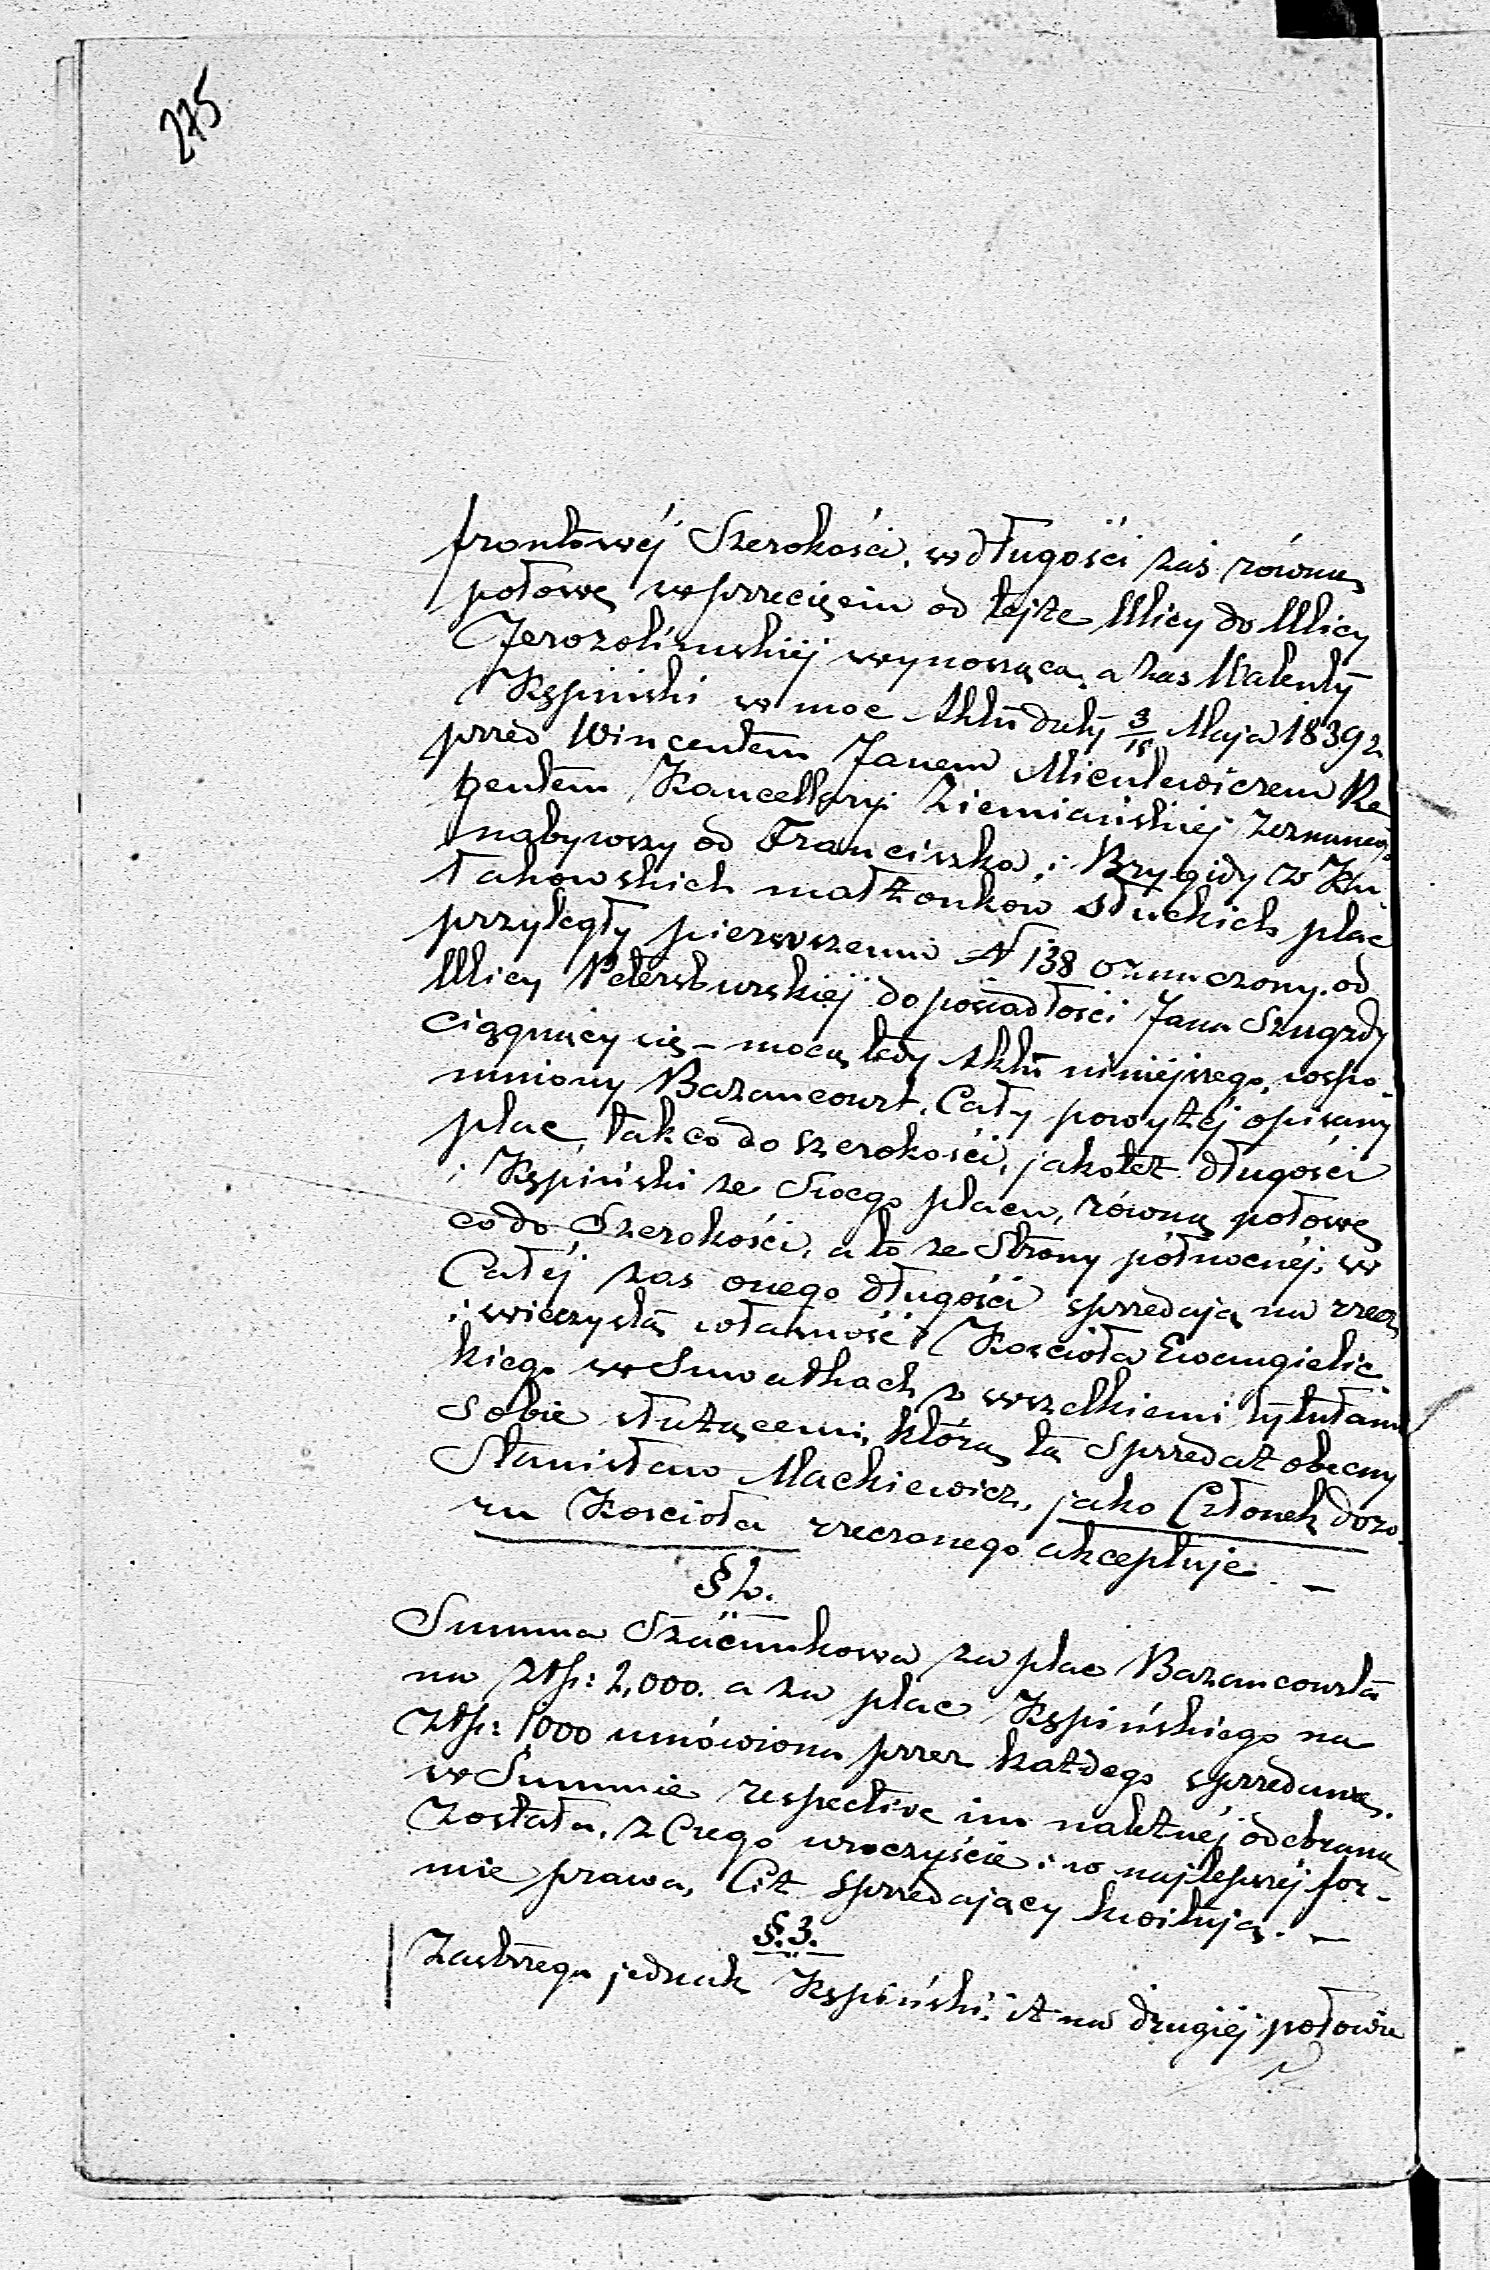 275
frontowéj Szerokości, w długości zaś równą
połowę w przecięciu od tejże Ulicy do Ulicy
Jerozolimskiéj wynoszącą, a zas Walenty
Kępiński w moc Aktu daty 3/15 Maja 1839 r
przed Wincentem Janem Miculewiczem Re
pentem Kancellaryi Ziemiańskiej zeznanego
nabywszy od Franciszka i Brygidy z Ku
takowskich małżonków Słuckich plac
przyległy pierwszemu N 138 oznaczony, od
Ulicy Petersburskiéj do posiadłości Jana Szugzdy
ciągnący się – mocą tedy Aktu niniéjszego, wspo
mniony Bazancourt, Cały powyżéj opisany
plac, tak co do szerokości, jakoteż długości
i Kępiński ze Swego placu, równą połowę
co do Szerokości, a to ze Strony północnéj, w
Całéj zas onego długości sprzedają na rzecz
i wieczystą własność Kościoła Ewangielic
kiego w Suwałkach z wszelkiemi tytułami
sobie służącemi, którą tą Sprzedaż obecny
Stanisław Mackiewicz, jako Członek dozo
ru Kościoła rzeczonego akceptuje. –
§ 2.
Summa Szacunkowa za plac Bazancourta
na Złp: 2,000. a za plac Kępińskiego na
Złp: 1000 umówiona przez każdego sprzedawcę
w Summie respective im należnéj odebrana
Została, z Czego uroczyście i w najlepszéj for-
mie prawa, Ciż sprzedający kwitują. –
§. 3.
Zastrzega jednak Kępiński, iż na drugiéj połowie